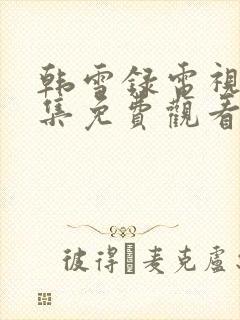 韩雪録雷視
集免費觀看
彼得 麥克盧